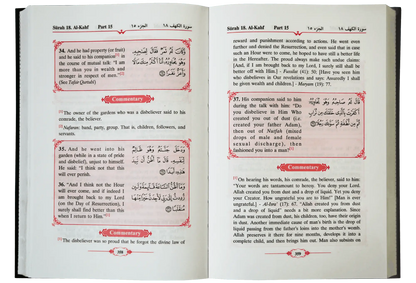 Sûrah 18. Al-Kahf Part 15 الجزء ١٥ سورة الكهف ١٨
34. And he had property (or fruit)
and he said to his companion[1] in
the course of mutual talk: "I am
more than you in wealth and
stronger in respect of men."[2]
(See Tafsir Qurtubi)
وَكَانَ لَهُ ثَمَرٌ فَقَالَ لِصَاحِبِهِ
وَهُوَ يُحَاوِرُهُ أَنَا أَكْثَرُ مِنكَ مَالًا
وَأَعَزُّ نَفَرًا
Commentary
[1] The owner of the gardens who was a disbeliever said to his
comrade, the believer.
[2] Nafaran: band, party, group. That is, children, followers, and
servants.
35. And he went into his
garden while in a state (of pride
and disbelief), unjust to himself.
He said: "I think not that this
will ever perish.
وَدَخَلَ جَنَّتَهُ وَهُوَ ظَالِمٌ
لِّنَفْسِهِ قَالَ مَا أَظُنُّ أَن تَبِيدَ
هَٰذِهِ أَبَدًا
36. "And I think not the Hour
will ever come, and if indeed I
am brought back to my Lord
(on the Day of Resurrection), I
surely shall find better than this
when I return to Him."[1]
وَمَا أَظُنُّ السَّاعَةَ قَائِمَةً
وَلَئِن رُّدِدتُّ إِلَىٰ رَبِّي لَأَجِدَنَّ خَيْرًا مِّنْهَا
مُنقَلَبًا
Commentary
[1] The disbeliever was so proud that he forgot the divine law of
308
Sûrah 18. Al-Kahf Part 15 الجزء ١٥ سورة الكهف ١٨
reward and punishment according to actions. He went even
further and denied the Resurrection, and even said that in case
such an Hour were to come, he hoped to still have a better life
in the Hereafter. The proud always make such vain claims:
[And, if I am brought back to my Lord, I surely will shall be
better off with Him.] - Fussilat (41): 50; [Have you seen him
who disbelieves in Our revelations and says: Assuredly I shall
be given wealth and children.] - Maryam (19): 77.
37. His companion said to him
during the talk with him: "Do
you disbelieve in Him Who
created you out of dust (i.e.
created your father Adam),
then out of Nutfah (mixed
drops of male and female
sexual discharge), then
fashioned you into a man?[1]
قَالَ لَهُ صَاحِبُهُ وَهُوَ يُحَاوِرُهُ
أَكَفَرْتَ بِالَّذِي خَلَقَكَ مِن تُرَابٍ
ثُمَّ مِن نُّطْفَةٍ ثُمَّ سَوَّاكَ رَجُلًا
Commentary
[1] On hearing his words, his comrade, the believer, said to him:
"Your words are tantamount to heresy. You deny your Lord.
Allah created you from dust and a drop of liquid. Yet you deny
your Creator. How ungrateful you are to Him!" [Man is ever
ungrateful.] - Al-Isra' (17): 67. "Allah created you from dust
and a drop of liquid" needs a bit more explanation. Since
Adam was created from dust, his children, too, have their origin
in dust. Another immediate cause of man's birth is the drop of
liquid passing from the father's loins into the mother's womb.
Allah preserves it there for nine months, develops it into a
complete child, and then brings him out. Man also subsists on
309